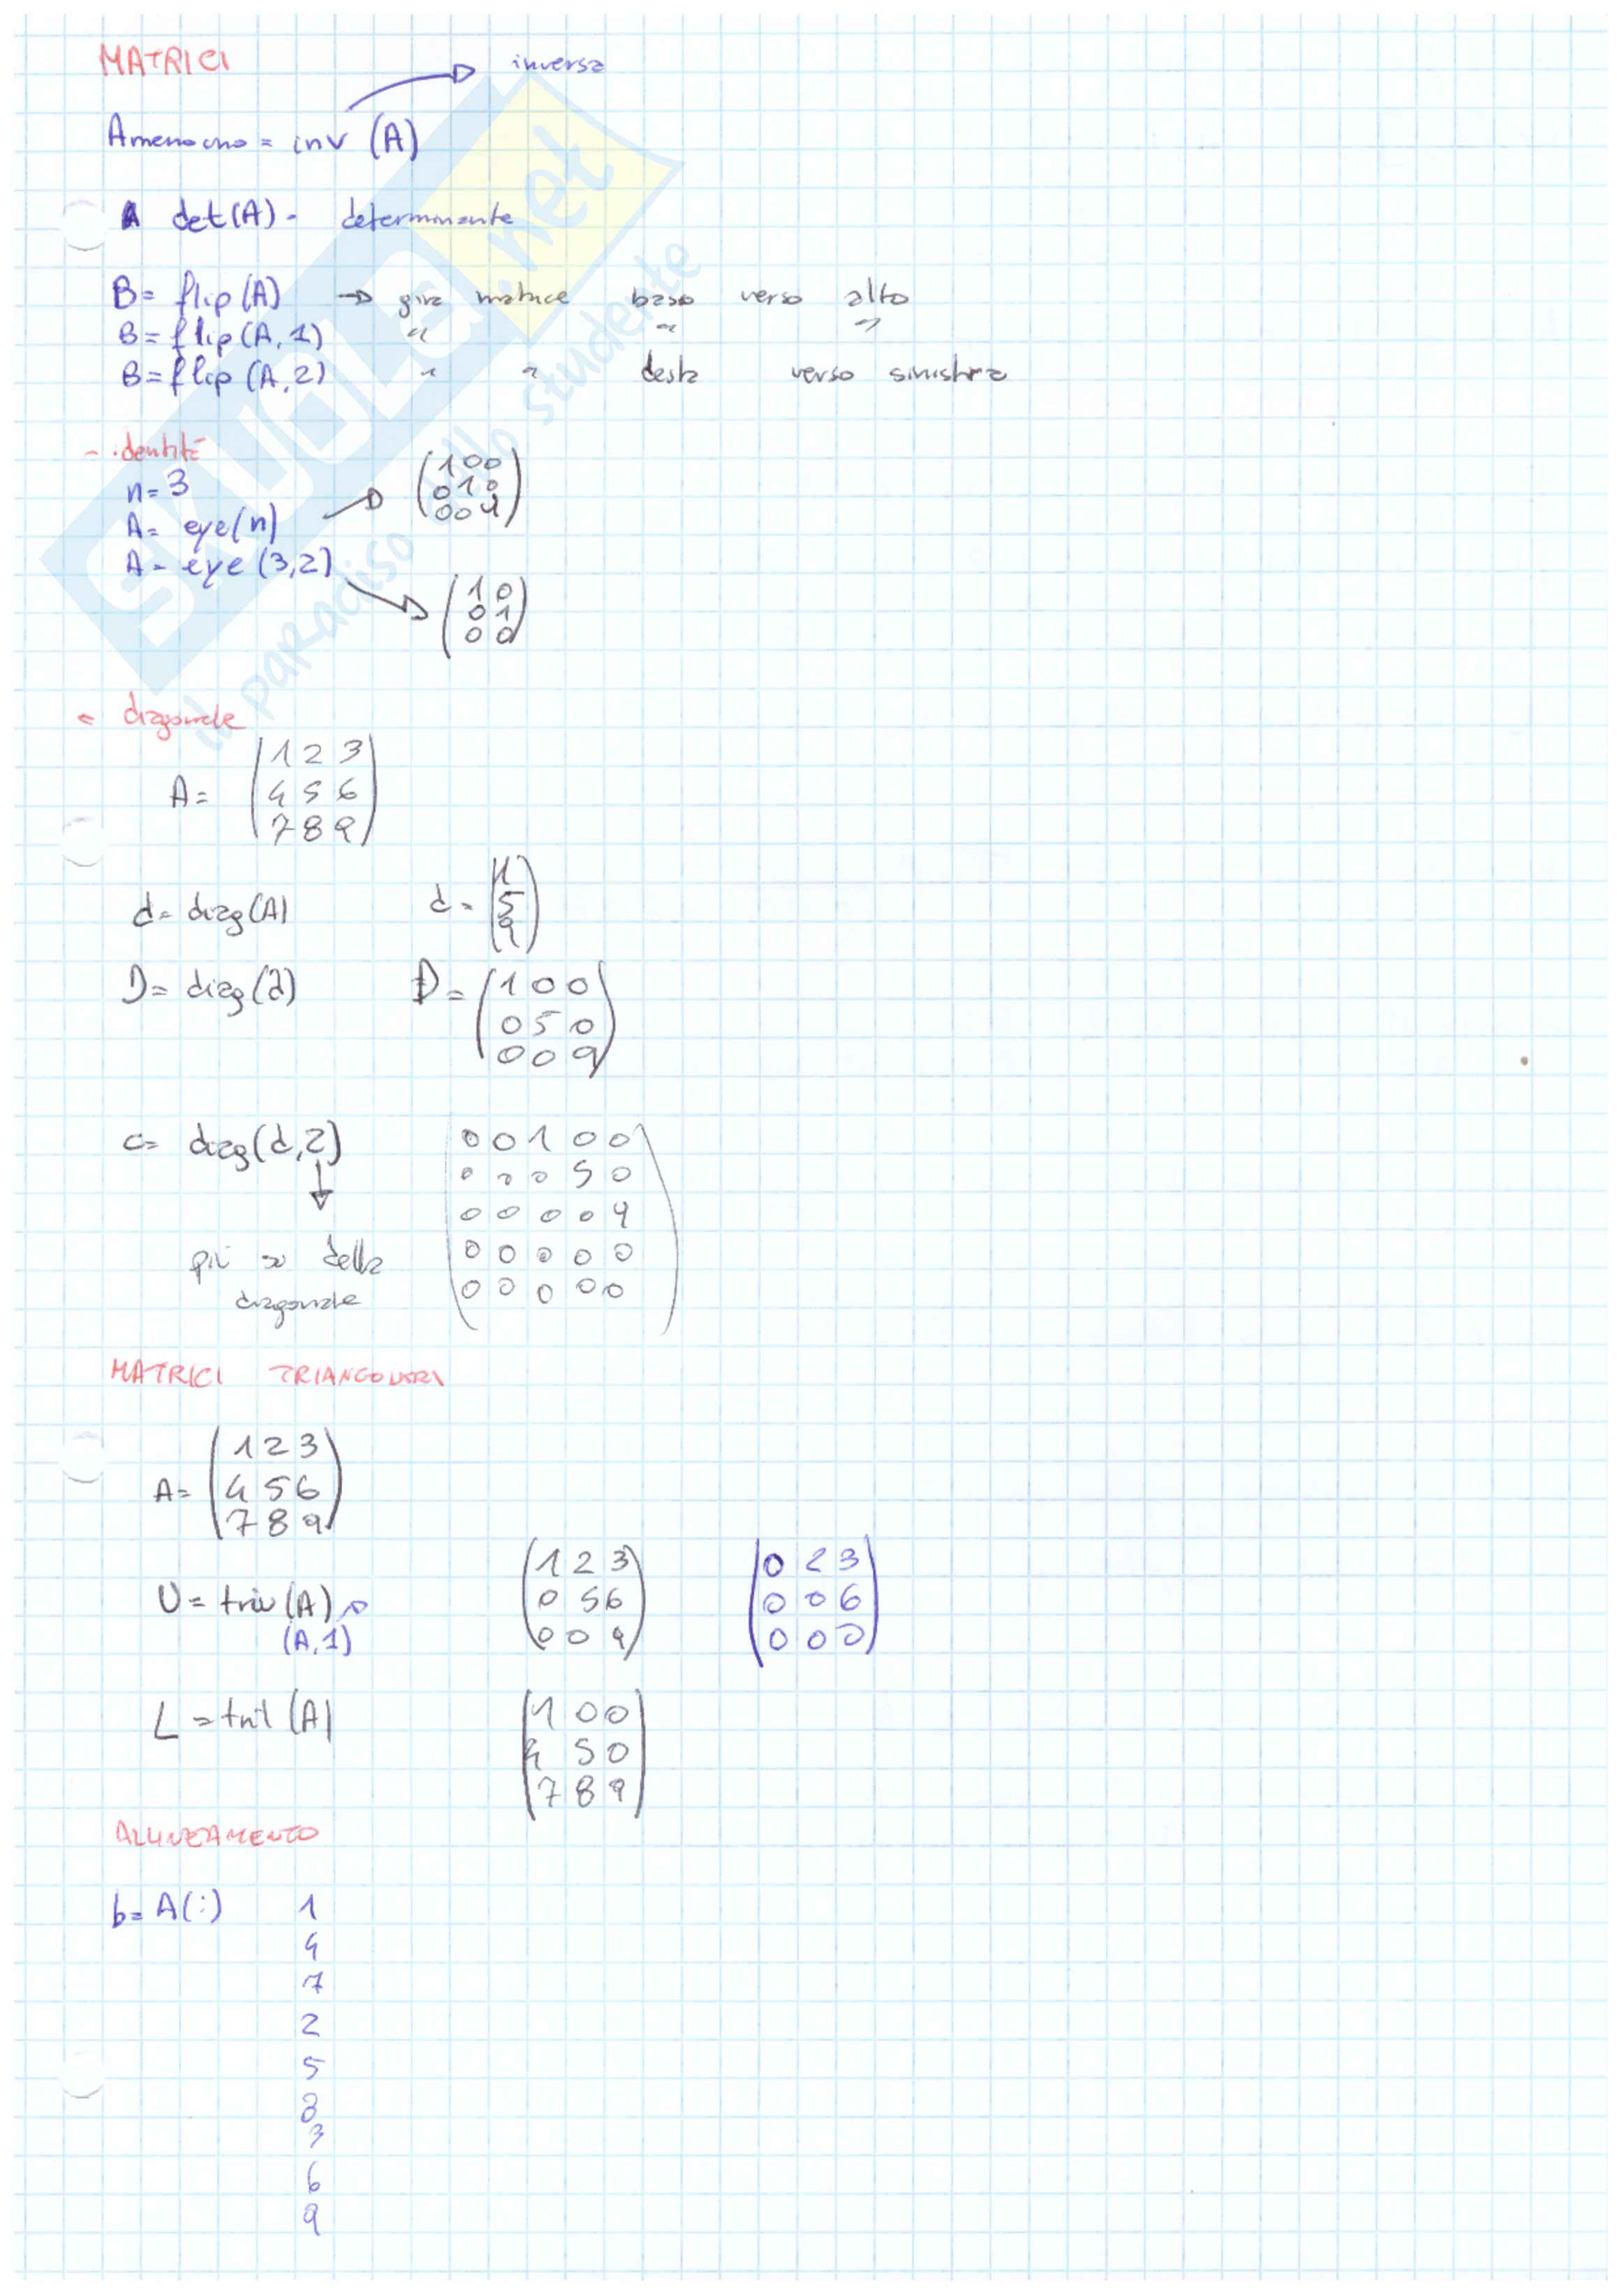 MATRICI
inversa
Amenouno = inv (A)
A det(A) - determinante
B= flip(A) → gira matrice basso verso alto
B= flip(A,1) " " "
B= flip(A,2) " " destra verso sinistra
- identità
n= 3
A= eye(n)
(1 0 0
0 1 0
0 0 1)
A= eye(3,2)
(1 0
0 1
0 0)
- diagonale
A= (1 2 3
4 5 6
7 8 9)
d= diag(A) d= (1
5
9)
D= diag(d) D= (1 0 0
0 5 0
0 0 9)
C= diag(d,2)
(0 0 1 0 0
0 0 0 5 0
0 0 0 0 9
0 0 0 0 0
0 0 0 0 0)
più su della
diagonale
MATRICI TRIANGOLARI
A= (1 2 3
4 5 6
7 8 9)
U= triu(A)
(A,1)
(1 2 3
0 5 6
0 0 9)
(0 2 3
0 0 6
0 0 0)
L = tril (A)
(1 0 0
4 5 0
7 8 9)
ALLINEAMENTO
b= A(:) 1
4
7
2
5
8
3
6
9
SKUOLA.net
il paradiso dello studente